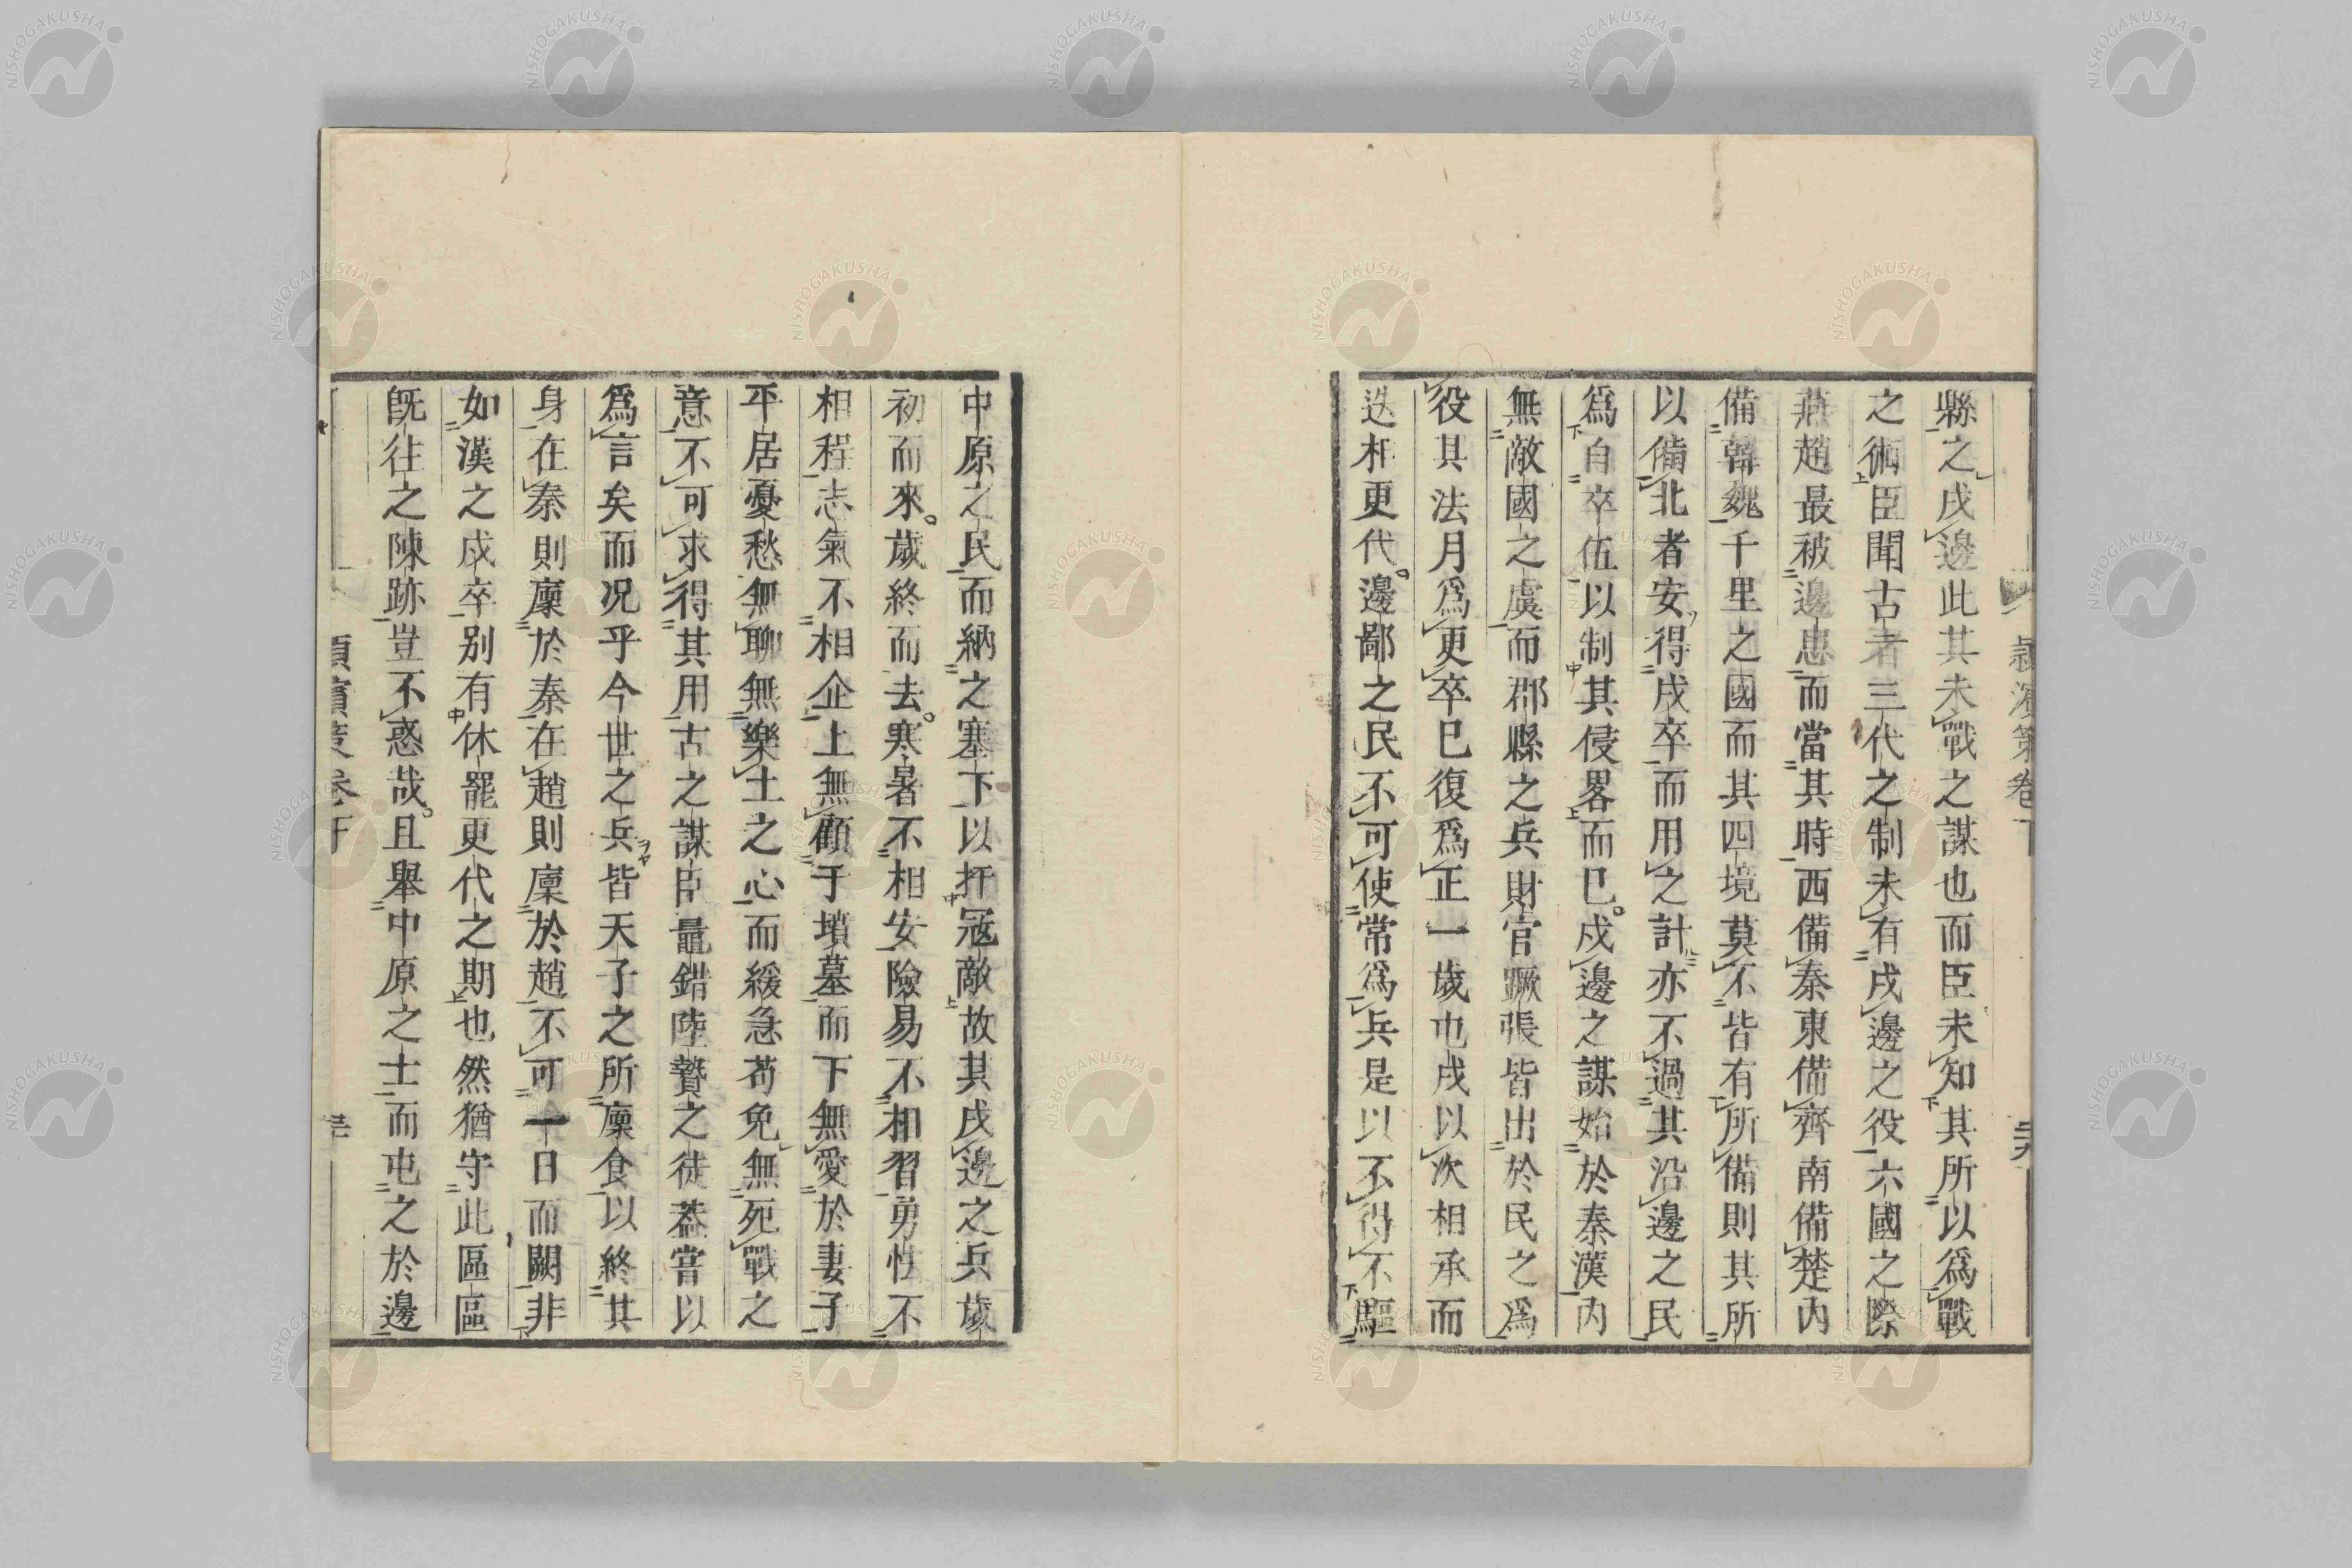 縣之戍邊此其未戰之謀也而臣未知其所以爲戰
之術臣聞古者三代之制未有戍邊之役六國之際
燕趙最被邊患而當其時西備秦東備齊南備楚内
備韓魏千里之國而其四境莫不皆有所備則其所
以備北者安得戍卒而用之計亦不過其沿邊之民
爲自卒伍以制其侵畧而已戍邊之謀始於秦漢内
無敵國之虞而郡縣之兵財官蹶張皆出於民之爲
役其法月爲更卒已復爲正一歲屯戍以次相承而
迭相更代邊鄙之民不可使常爲兵是以不得不驅
中原之民而納之塞下以扞冦敵故其戍邊之兵歲
初而來歲終而去寒暑不相安險易不相習勇性不
相程志氣不相企上無顧于墳墓而下無愛於妻子
平居憂愁無聊無樂土之心而緩急苟免無死戰之
意不可求得其用古之謀臣鼂錯陸贄之徒葢嘗以
爲言矣而况乎今世之兵皆天子之所廩食以終其
身在秦則廩於秦在趙則廩於趙不可一日而闕非
如漢之戍卒别有休罷更代之期也然猶守此區區
旣往之陳跡豈不惑哉且舉中原之士而屯之於邊
潁濱策卷下
NISHOGAKUSHA